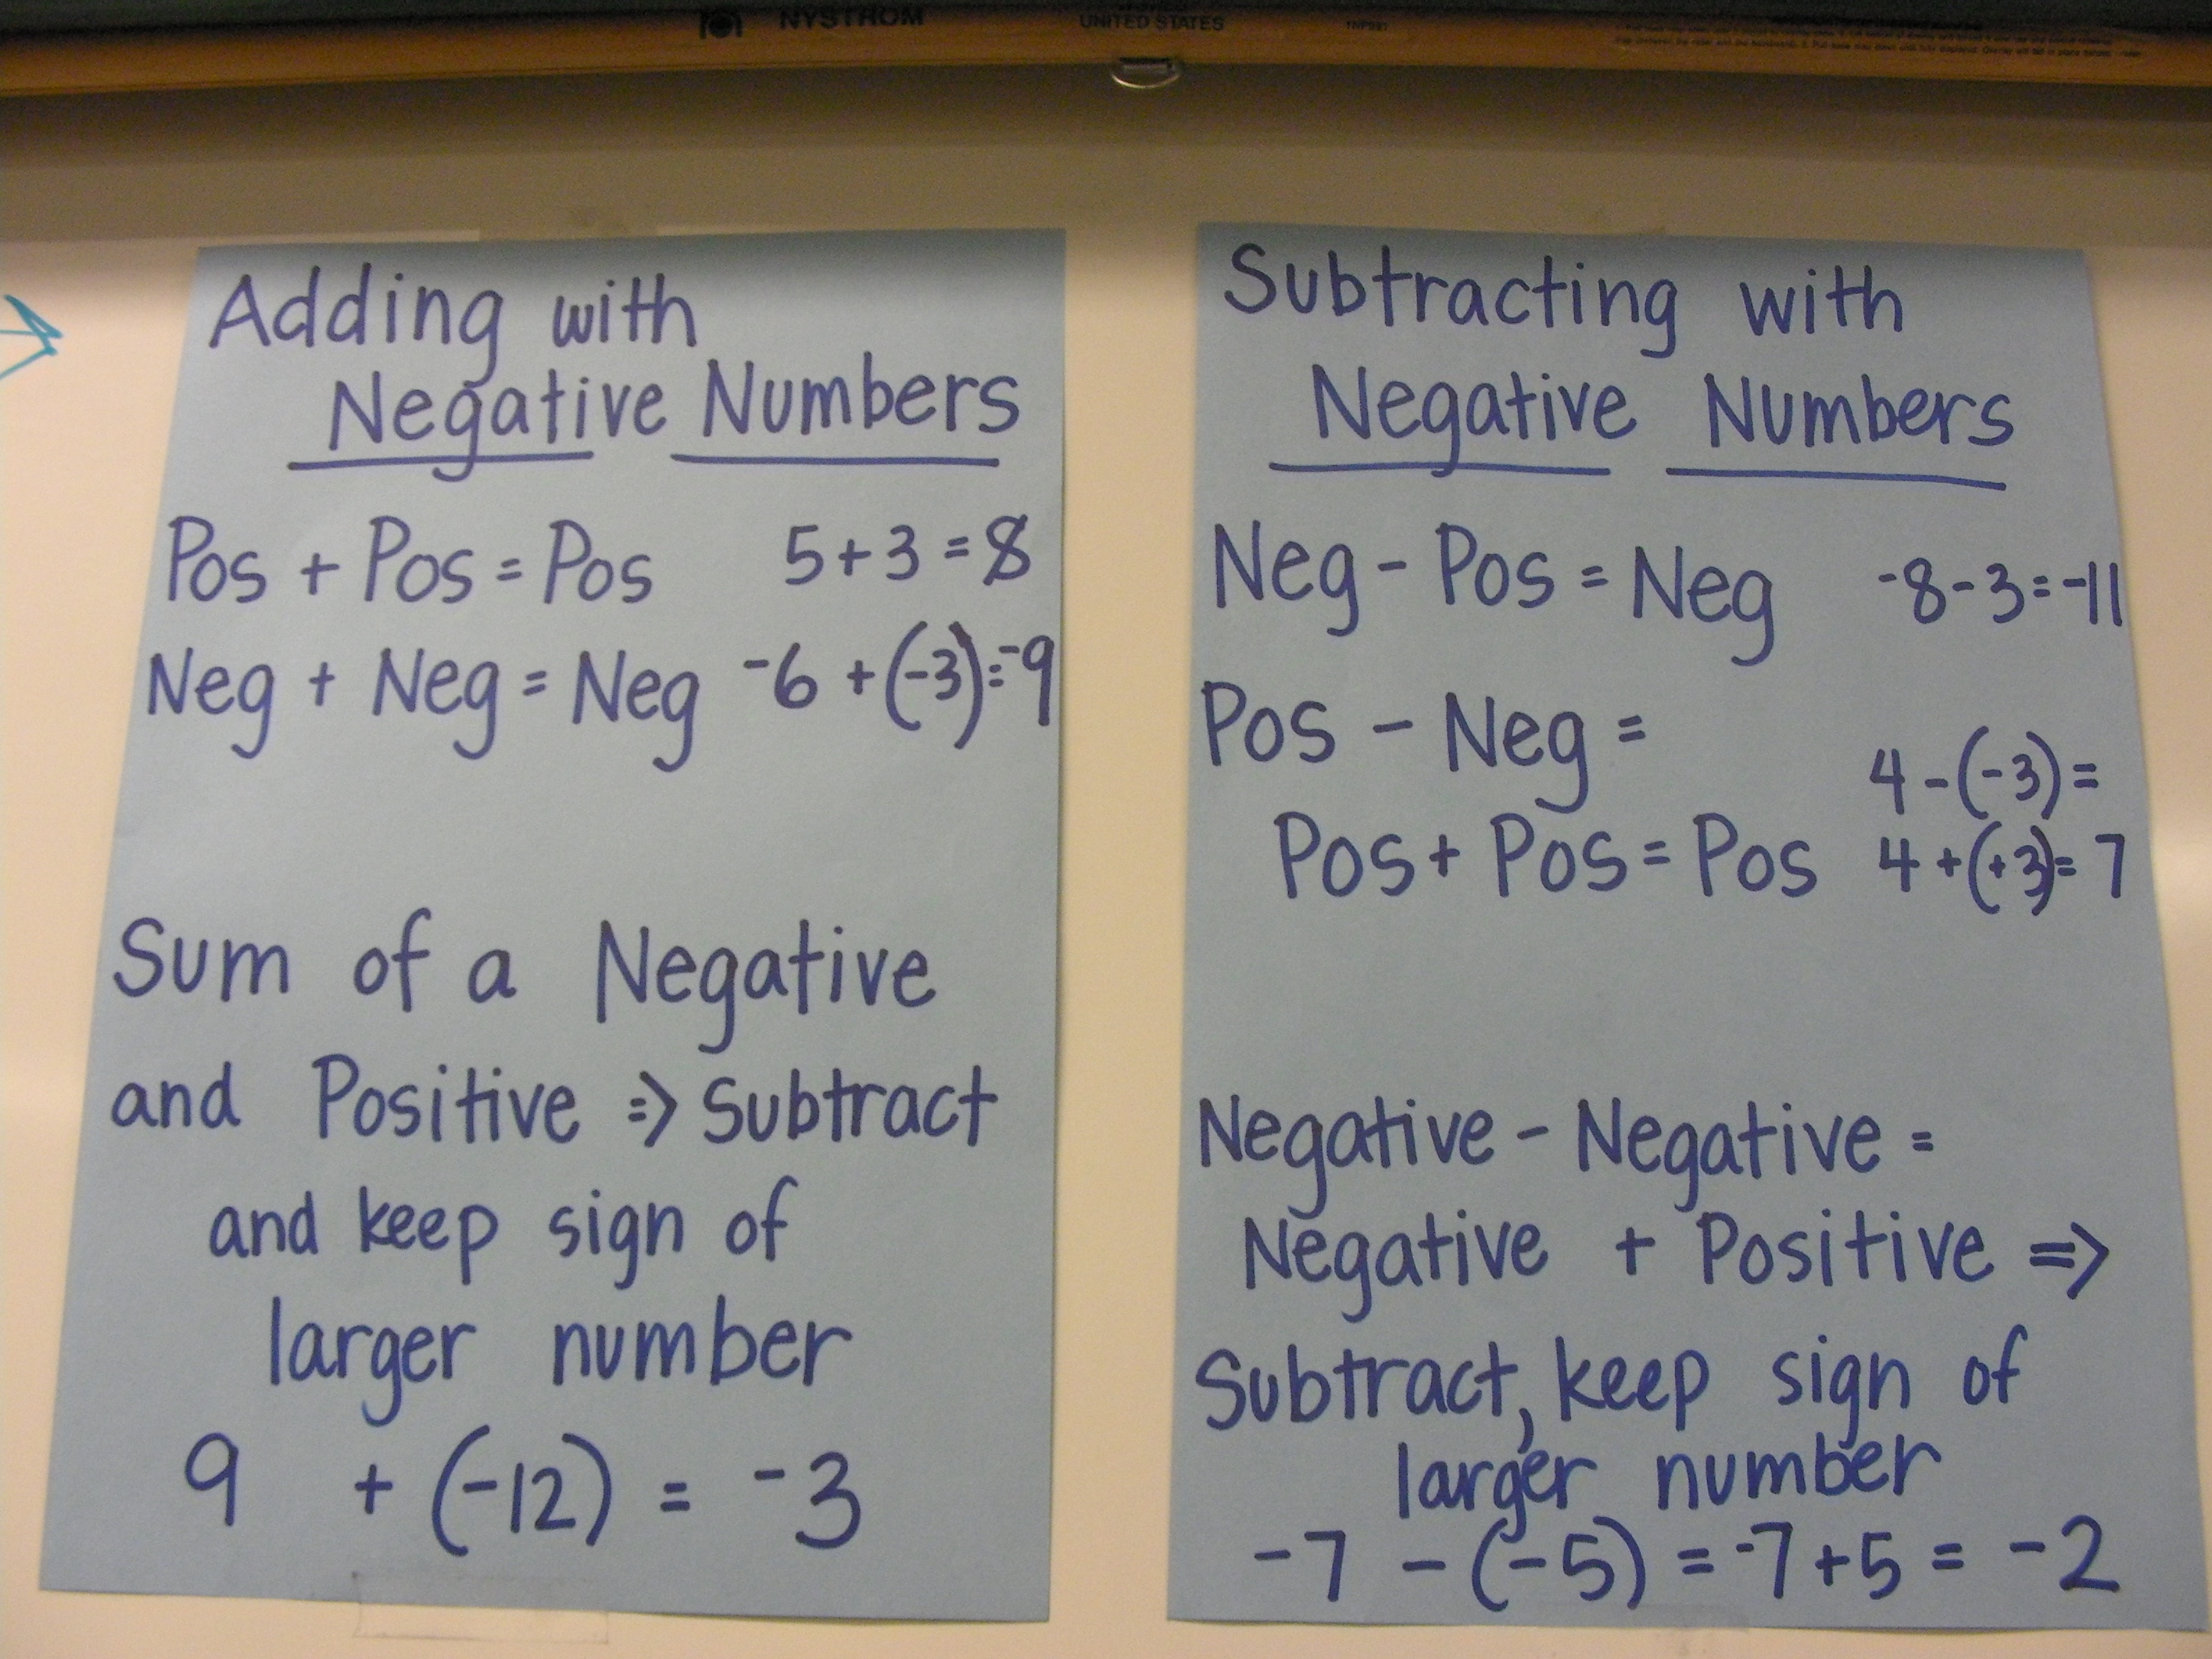 NYSTROM
UNITED STATES
Adding with
Negative Numbers
Pos + Pos = Pos 5 + 3 = 8
Neg + Neg = Neg -6 + (-3) = -9
Sum of a Negative
and Positive => Subtract
and keep sign of
larger number
9 + (-12) = -3
Subtracting with
Negative Numbers
Neg - Pos = Neg -8 - 3 = -11
Pos - Neg =
4 - (-3) =
Pos + Pos = Pos 4 + (+3) = 7
Negative - Negative =
Negative + Positive =>
Subtract, keep sign of
larger number
-7 - (-5) = -7 + 5 = -2